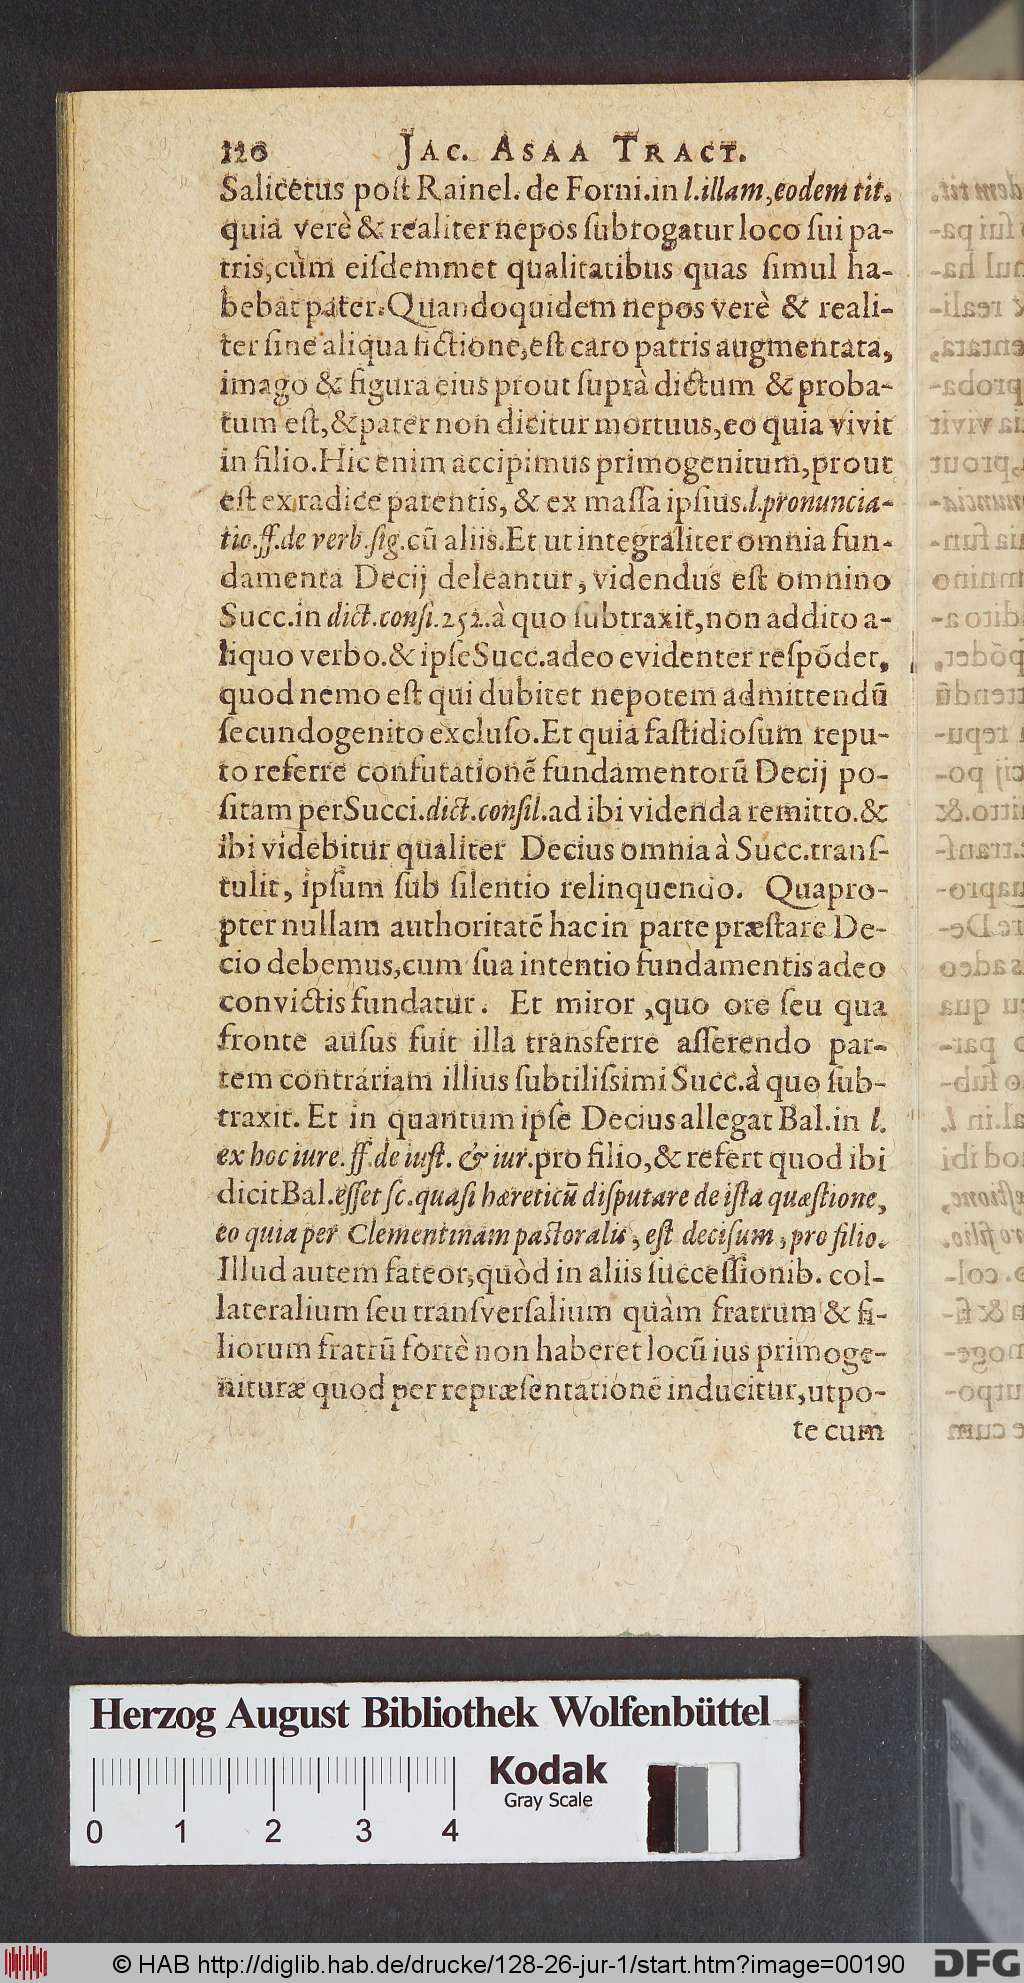 120 JAC. ASAA TRACT.
Salicetus poſt Rainel. de Forni. in l. illam, eodem tit.
quia verè & realiter nepos ſubrogatur loco ſui pa-
tris, cùm eiſdemmet qualitatibus quas ſimul ha-
bebat pater. Quandoquidem nepos verè & reali-
ter ſine aliqua fictione, eſt caro patris augmentata,
imago & figura eius prout ſuprà dictum & proba-
tum eſt, & pater non dicitur mortuus, eo quia vivit
in filio. Hic enim accipimus primogenitum, prout
eſt ex radice parentis, & ex maſſa ipſius. l. pronuncia-
tio. ff. de verb. ſig. cū aliis. Et ut integraliter omnia fun-
damenta Decij deleantur, videndus eſt omnino
Succ. in dict. conſi. 252. à quo ſubtraxit, non addito a-
liquo verbo. & ipſe Succ. adeo evidenter reſpōdet,
quod nemo eſt qui dubitet nepotem admittendū
ſecundogenito excluſo. Et quia faſtidioſum repu-
to referre confutationē fundamentorū Decij po-
ſitam per Succi. dict. conſil. ad ibi videnda remitto. &
ibi videbitur qualiter Decius omnia à Succ. tranſ-
tulit, ipſum ſub ſilentio relinquendo. Quapro-
pter nullam authoritatē hac in parte præſtare De-
cio debemus, cum ſua intentio fundamentis adeo
convictis fundatur. Et miror, quo ore ſeu qua
fronte auſus fuit illa transferre aſſerendo par-
tem contrariam illius ſubtiliſsimi Succ. à quo ſub-
traxit. Et in quantum ipſe Decius allegat Bal. in l.
ex hoc iure. ff. de iuſt. & iur. pro filio, & refert quod ibi
dicit Bal. eſſet ſc. quaſi hæreticū diſputare de iſta quæſtione,
eo quia per Clementinam paſtoralis, eſt deciſum, pro filio.
Illud autem fateor, quòd in aliis ſucceſſionib. col-
lateralium ſeu tranſverſalium quàm fratrum & fi-
liorum fratrū fortè non haberet locū ius primoge-
nituræ quod per repræſentationē inducitur, utpo-
te cum
Herzog August Bibliothek Wolfenbüttel
Kodak
Gray Scale
0 1 2 3 4
© HAB http://diglib.hab.de/drucke/128-26-jur-1/start.htm?image=00190
DFG